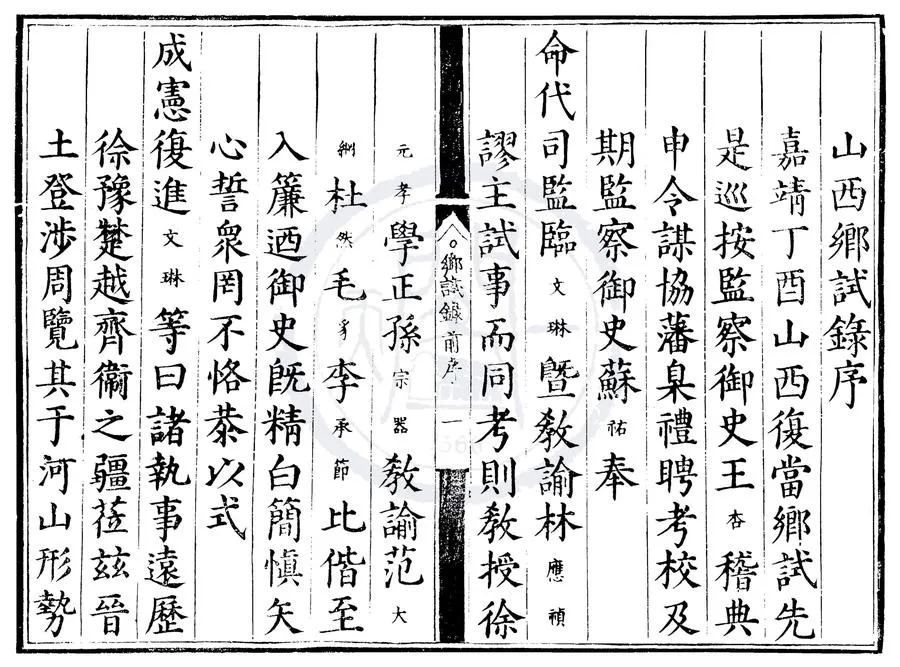 山西鄉試錄序
嘉靖丁酉山西復當鄉試先
是巡按監察御史王杏稽典
申令謀協藩臬禮聘考校及
期監察御史蘇祐奉
命代司監臨文琳曁教諭林應禎
謬主試事而同考則教授徐
元孝學正孫宗器教諭范大
綱杜然毛李承節比偕至
入簾迺御史旣精白簡愼矢
心誓衆罔不恪恭以式
成憲復進文琳等曰諸執事遠歷
徐豫楚越齊衞之疆莅兹晉
土登涉周覽其于河山形勢
鄉試錄前序 一